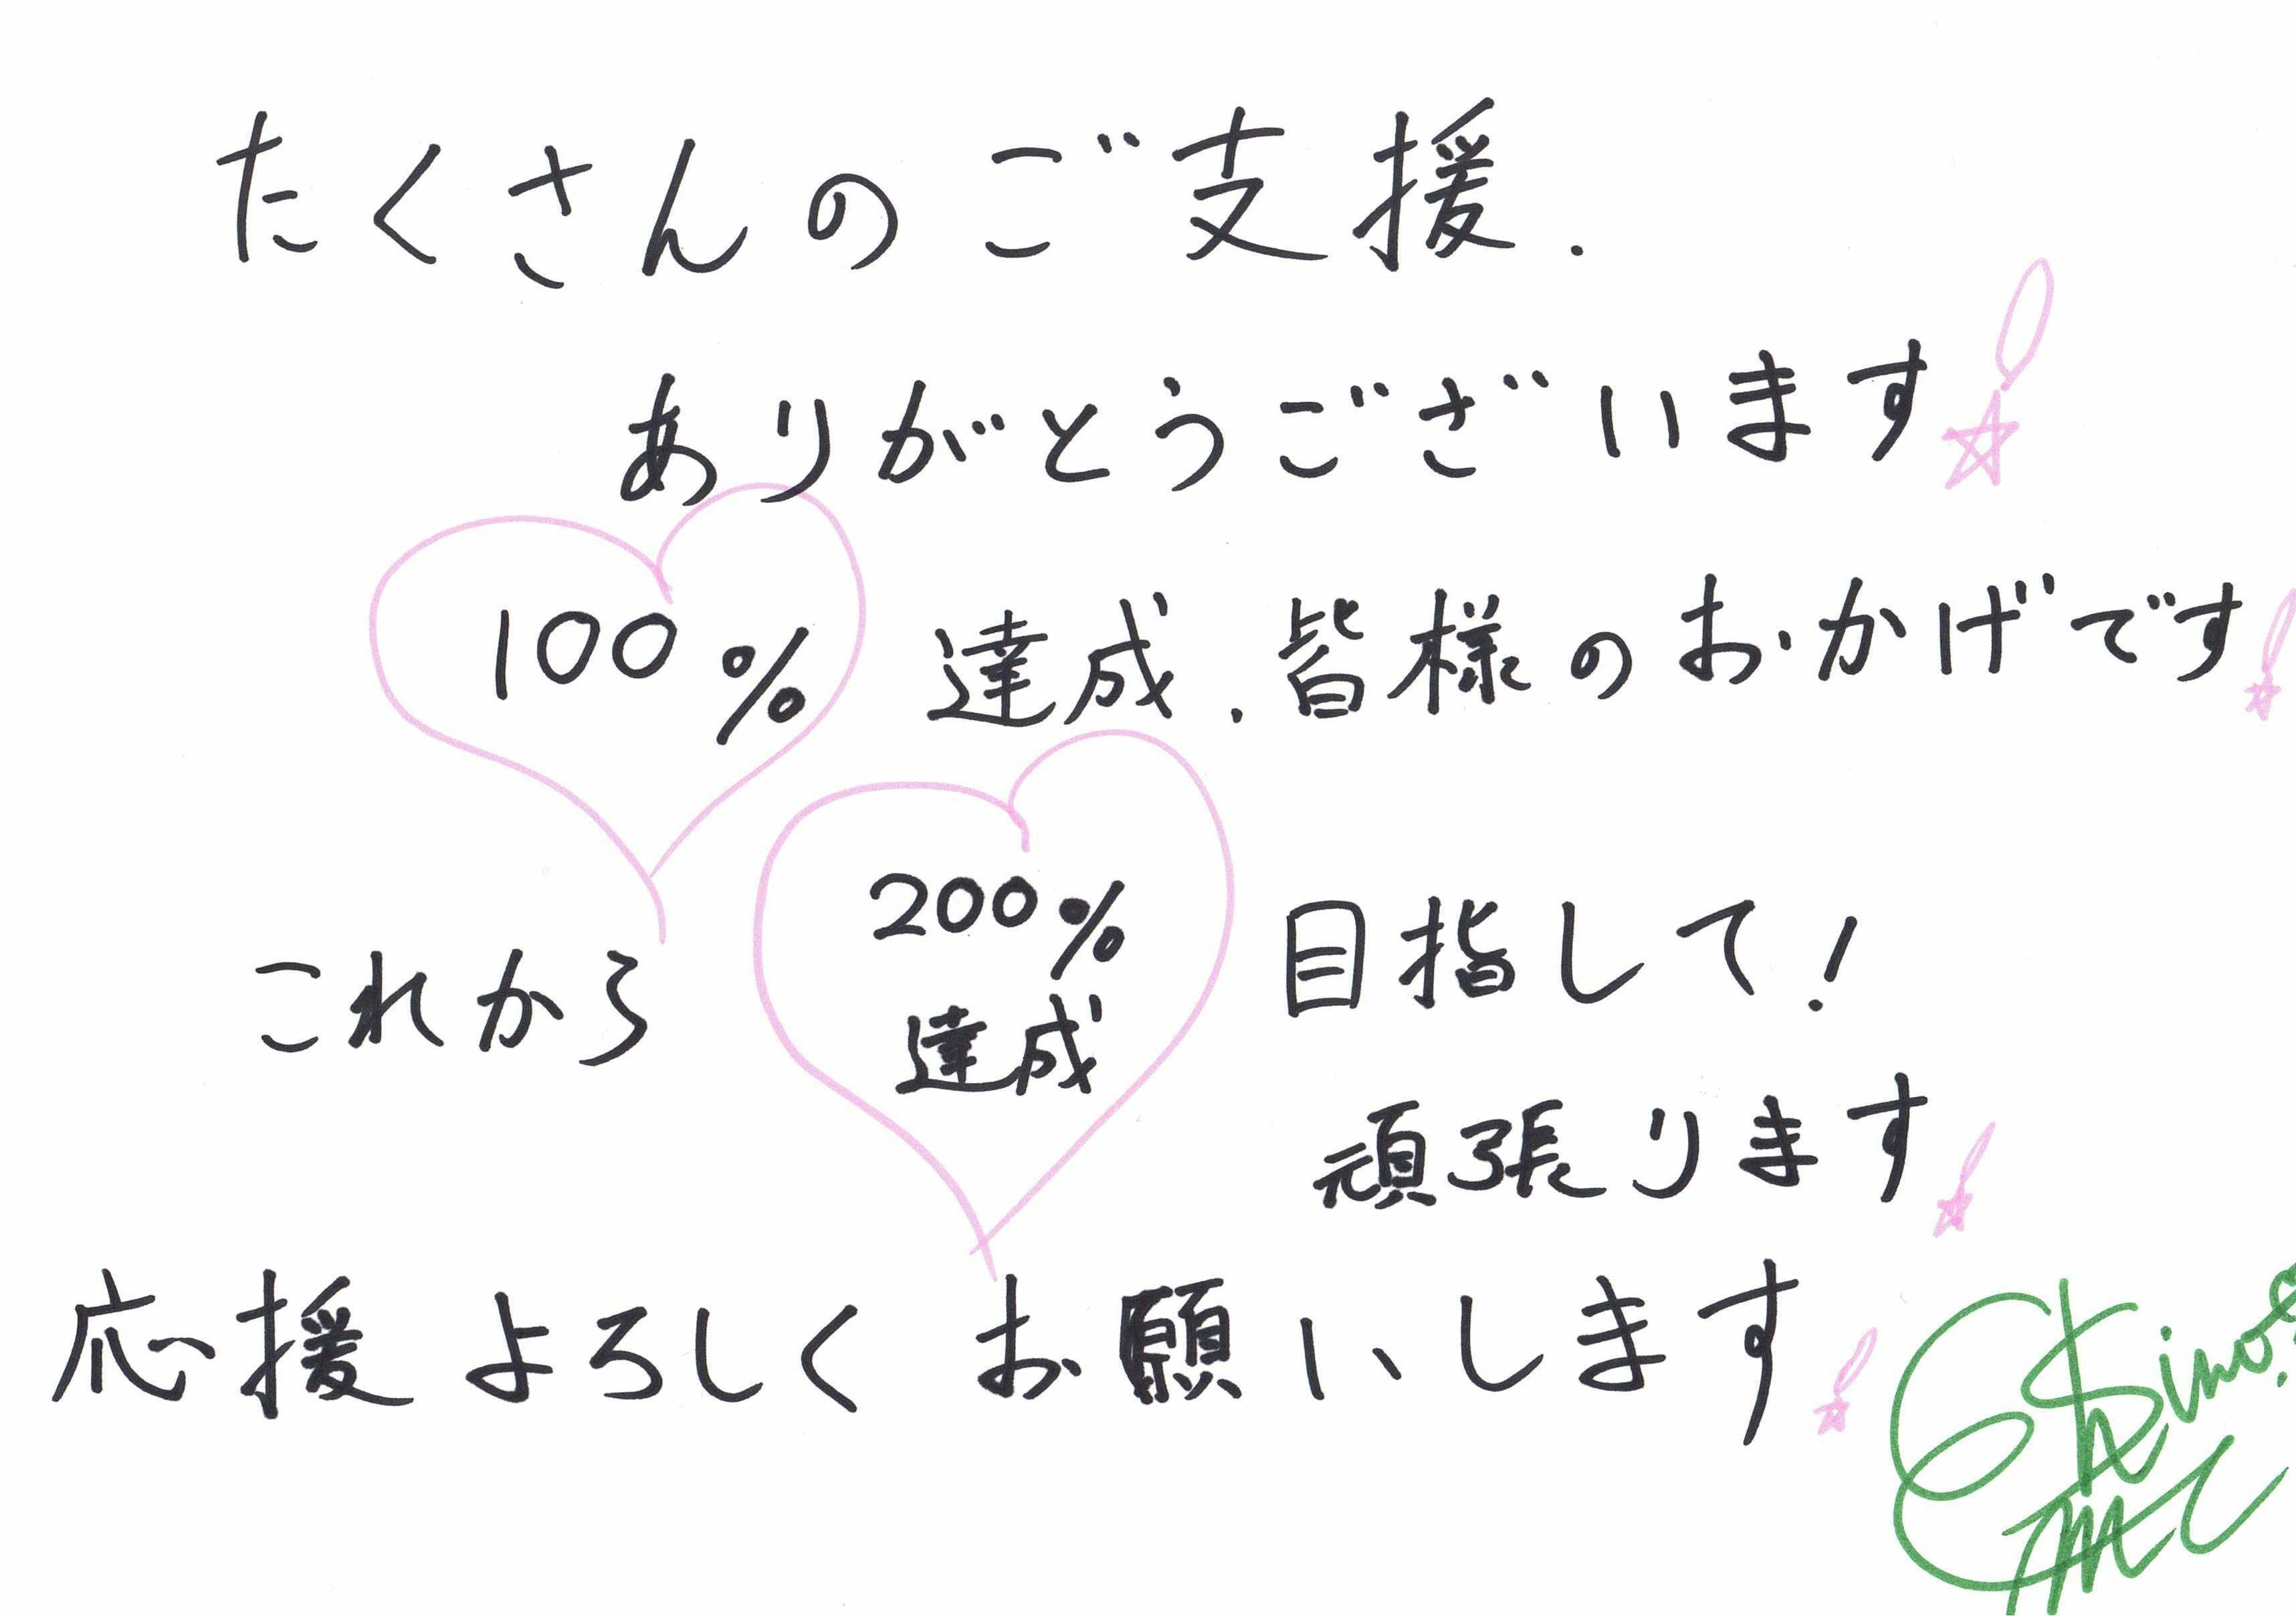 たくさんのご支援.
ありがとうございます!
100% 達成.皆様のおかげです!
これから 200%達成 目指して!
頑張ります!
応援よろしくお願いします!